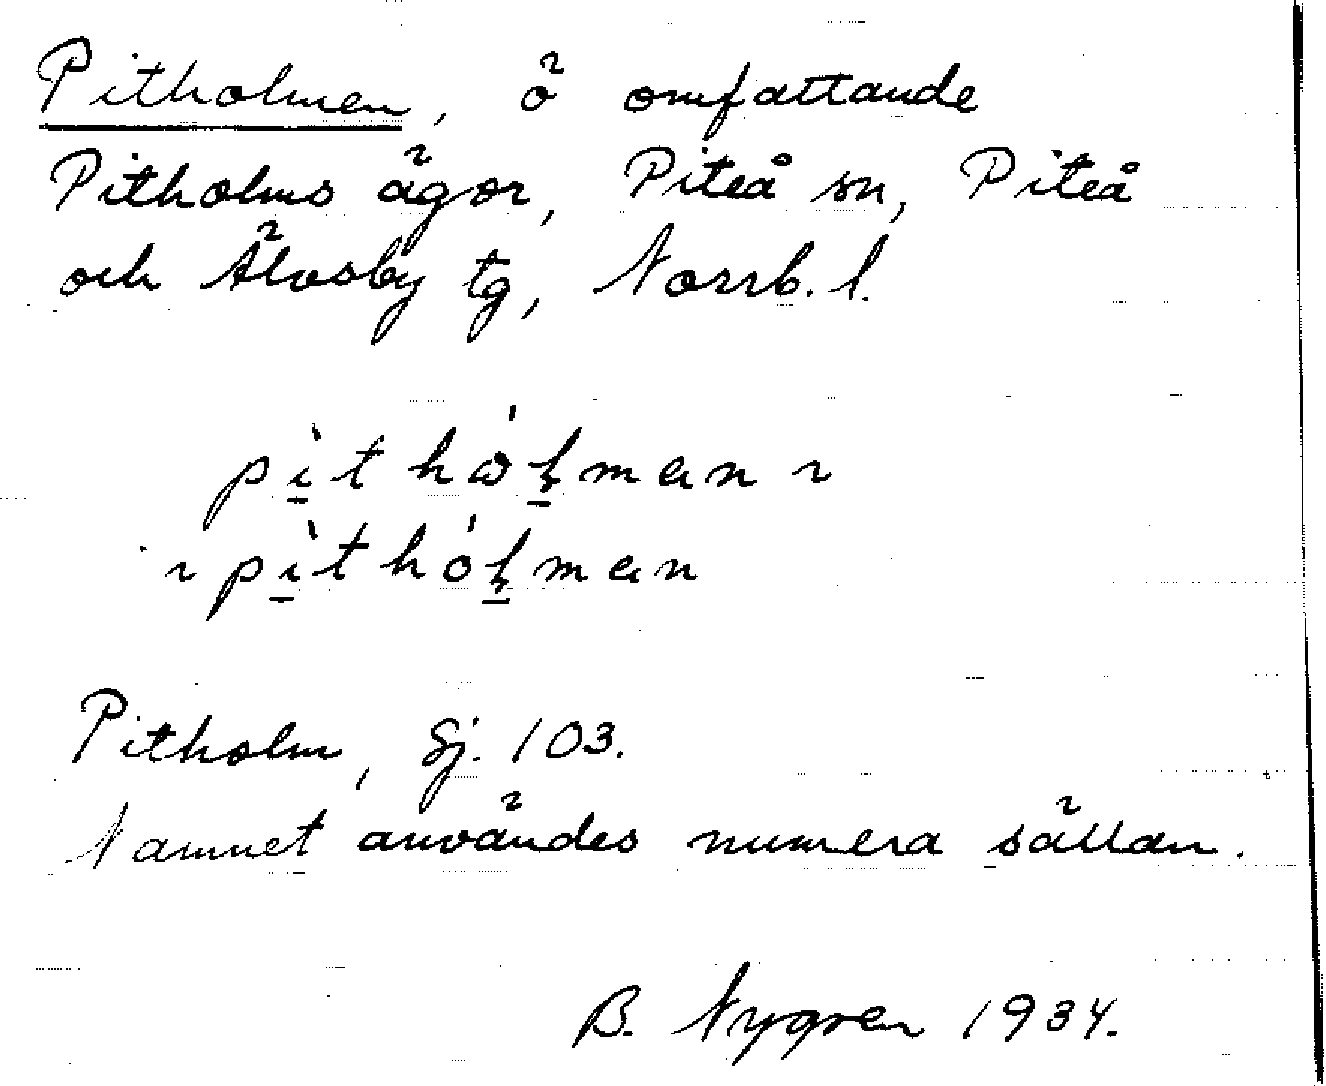 Pitholmen, ö omfattande
Pitholms ägor, Piteå sn, Piteå
och Älvsby tg, Norrb. l.
pìthólmen ~
~ pìthólmen
Pitholm, Sj. 103.
Namnet användes numera sällan.
B. Nygren 1934.